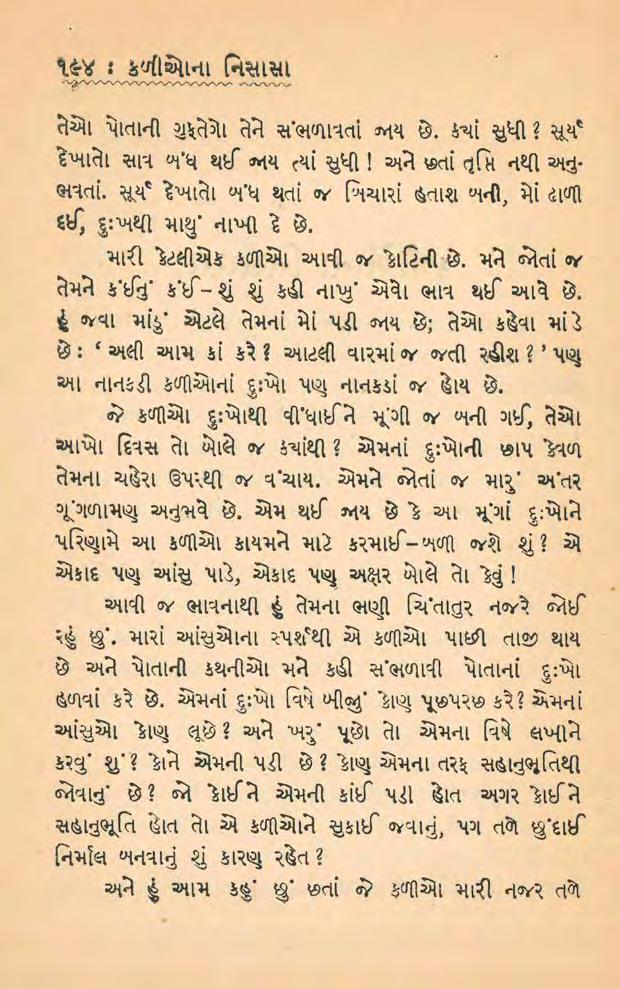 ૧૯૪ : કળીઓના નિસાસા
તેઓ પોતાની ગુફતેગો તેને સંભળાવતાં જાય છે. કયાં સુધી ? સૂર્ય
દેખાતો સાવ બંધ થઈ જાય ત્યાં સુધી ! અને છતાં તૃપ્તિ નથી અનુ-
ભવતાં. સૂર્ય દેખાતો બંધ થતાં જ બિચારાં હતાશ બની, મોં ઢાળી
દઈ, દુઃખથી માથું નાખી દે છે.
મારી કેટલીએક કળીઓ આવી જ કોટિની છે. મને જોતાં જ
તેમને કંઈનું કંઈ–શું શું કહી નાખું એવો ભાવ થઈ આવે છે.
હું જવા માંડું એટલે તેમનાં મોં પડી જાય છે; તેઓ કહેવા માંડે
છે : ‘ અલી આમ કાં કરે ? આટલી વારમાં જ જતી રહીશ ? ’ પણ
આ નાનકડી કળીઓનાં દુઃખો પણ નાનકડાં જ હોય છે.
જે કળીઓ દુઃખોથી વીંધાઈને મૂંગી જ બની ગઈ, તેઓ
આખો દિવસ તો બોલે જ કયાંથી ? એમનાં દુઃખોની છાપ કેવળ
તેમના ચહેરા ઉપરથી જ વંચાય. એમને જોતાં જ મારું અંતર
ગૂંગળામણ અનુભવે છે. એમ થઈ જાય છે કે આ મૂંગાં દુઃખોને
પરિણામે આ કળીઓ કાયમને માટે કરમાઈ–બળી જશે શું ? એ
એકાદ પણ આંસુ પાડે, એકાદ પણ અક્ષર બોલે તો કેવું !
આવી જ ભાવનાથી હું તેમના ભણી ચિંતાતુર નજરે જોઈ
રહું છું. મારાં આંસુઓના સ્પર્શથી એ કળીઓ પાછી તાજી થાય
છે અને પોતાની કથનીઓ મને કહી સંભળાવી પોતાનાં દુઃખો
હળવાં કરે છે. એમનાં દુઃખો વિષે બીજું કોણ પૂછપરછ કરે ? એમનાં
આંસુઓ કોણ લૂછે ? અને ખરું પૂછો તો એમના વિષે લખીને
કરવું શું ? કોને એમની પડી છે ? કોણ એમના તરફ સહાનુભૂતિથી
જોવાનું છે ? જો કોઈને એમની કાંઈ પડી હોત અગર કોઈને
સહાનુભૂતિ હોત તો એ કળીઓને સુકાઈ જવાનું, પગ તળે છુંદાઈ
નિર્માલ બનવાનું શું કારણ રહેત ?
અને હું આમ કહું છું છતાં જે કળીઓ મારી નજર તળે